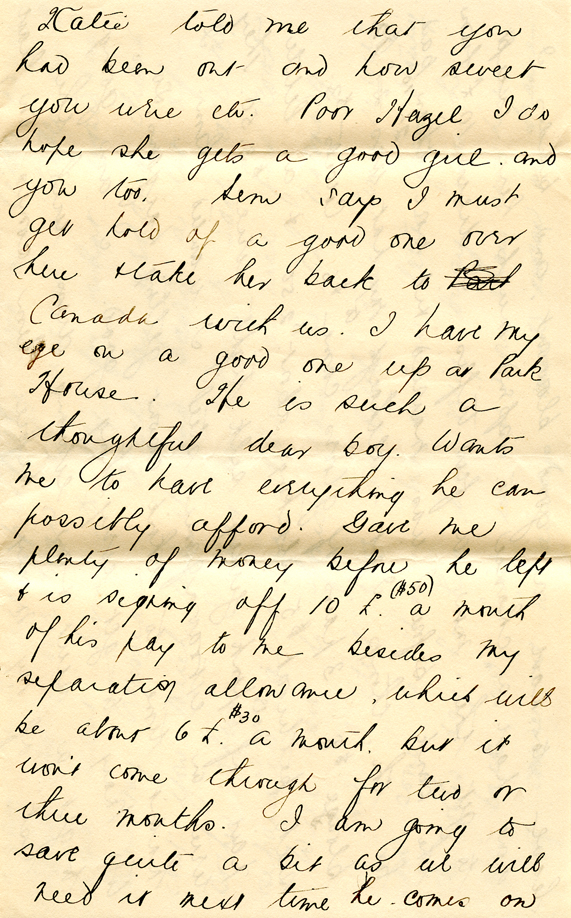 Katie told me that you
had been out and how sweet
you were etc. Poor Hazel I do
hope she gets a good girl. and
you too. Lem says I must
get hold of a good one over
here & take her back to
Canada with us. I have my
eye on a good one up at Park
House. He is such a
thoughtful dear boy. Wants
me to have everything he can
possibly afford. Gave me
plenty of money before he left
& is signing off 10 £. ($50) a month
of his pay to me besides my
separation allowance, which will
be about 6 £. $30 a month. but it
won't come through for two or
three months. I am going to
save quite a bit as we will
need it next time he comes on